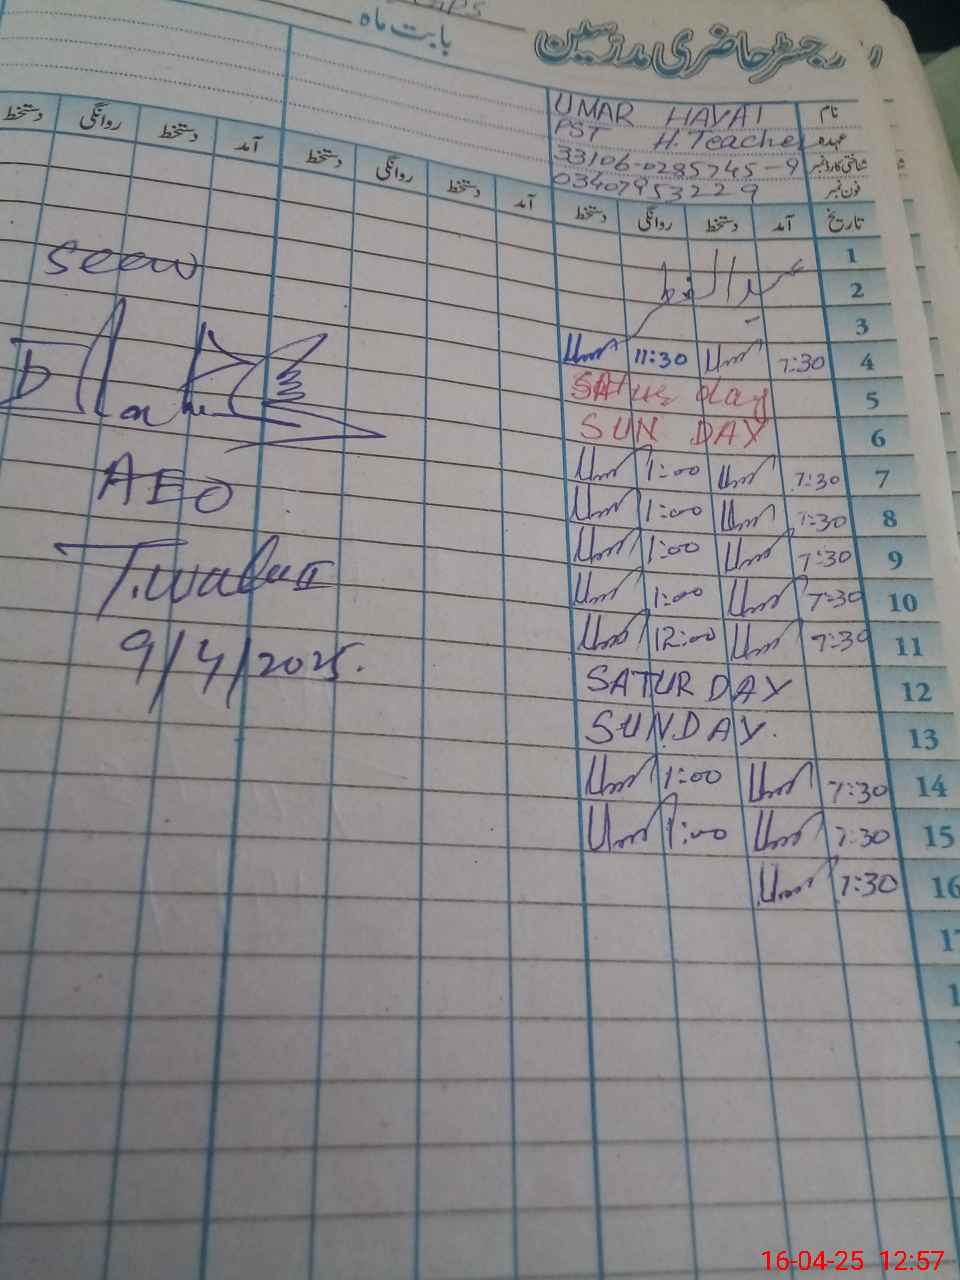 بابت ماہ
رجسٹر حاضری مدرسین
نام UMAR HAYAT
عہدہ PST H.Teacher
شناختی کارڈ نمبر 33106-0285745-9
فون نمبر 03407953229
تاریخ آمد دستخط روانگی دستخط آمد دستخط روانگی دستخط آمد دستخط روانگی دستخط
1
2 عید الفطر
3
4 7:30 11:30
5 SATUR day
6 SUN DAY
7 7:30 1:00
8 7:30 1:00
9 7:30 1:00
10 7:30 1:00
11 7:30 12:00
12 SATURDAY
13 SUNDAY.
14 7:30 1:00
15 7:30 1:00
16 7:30
Seen
AEO
9/4/2025.
16-04-25 12:57